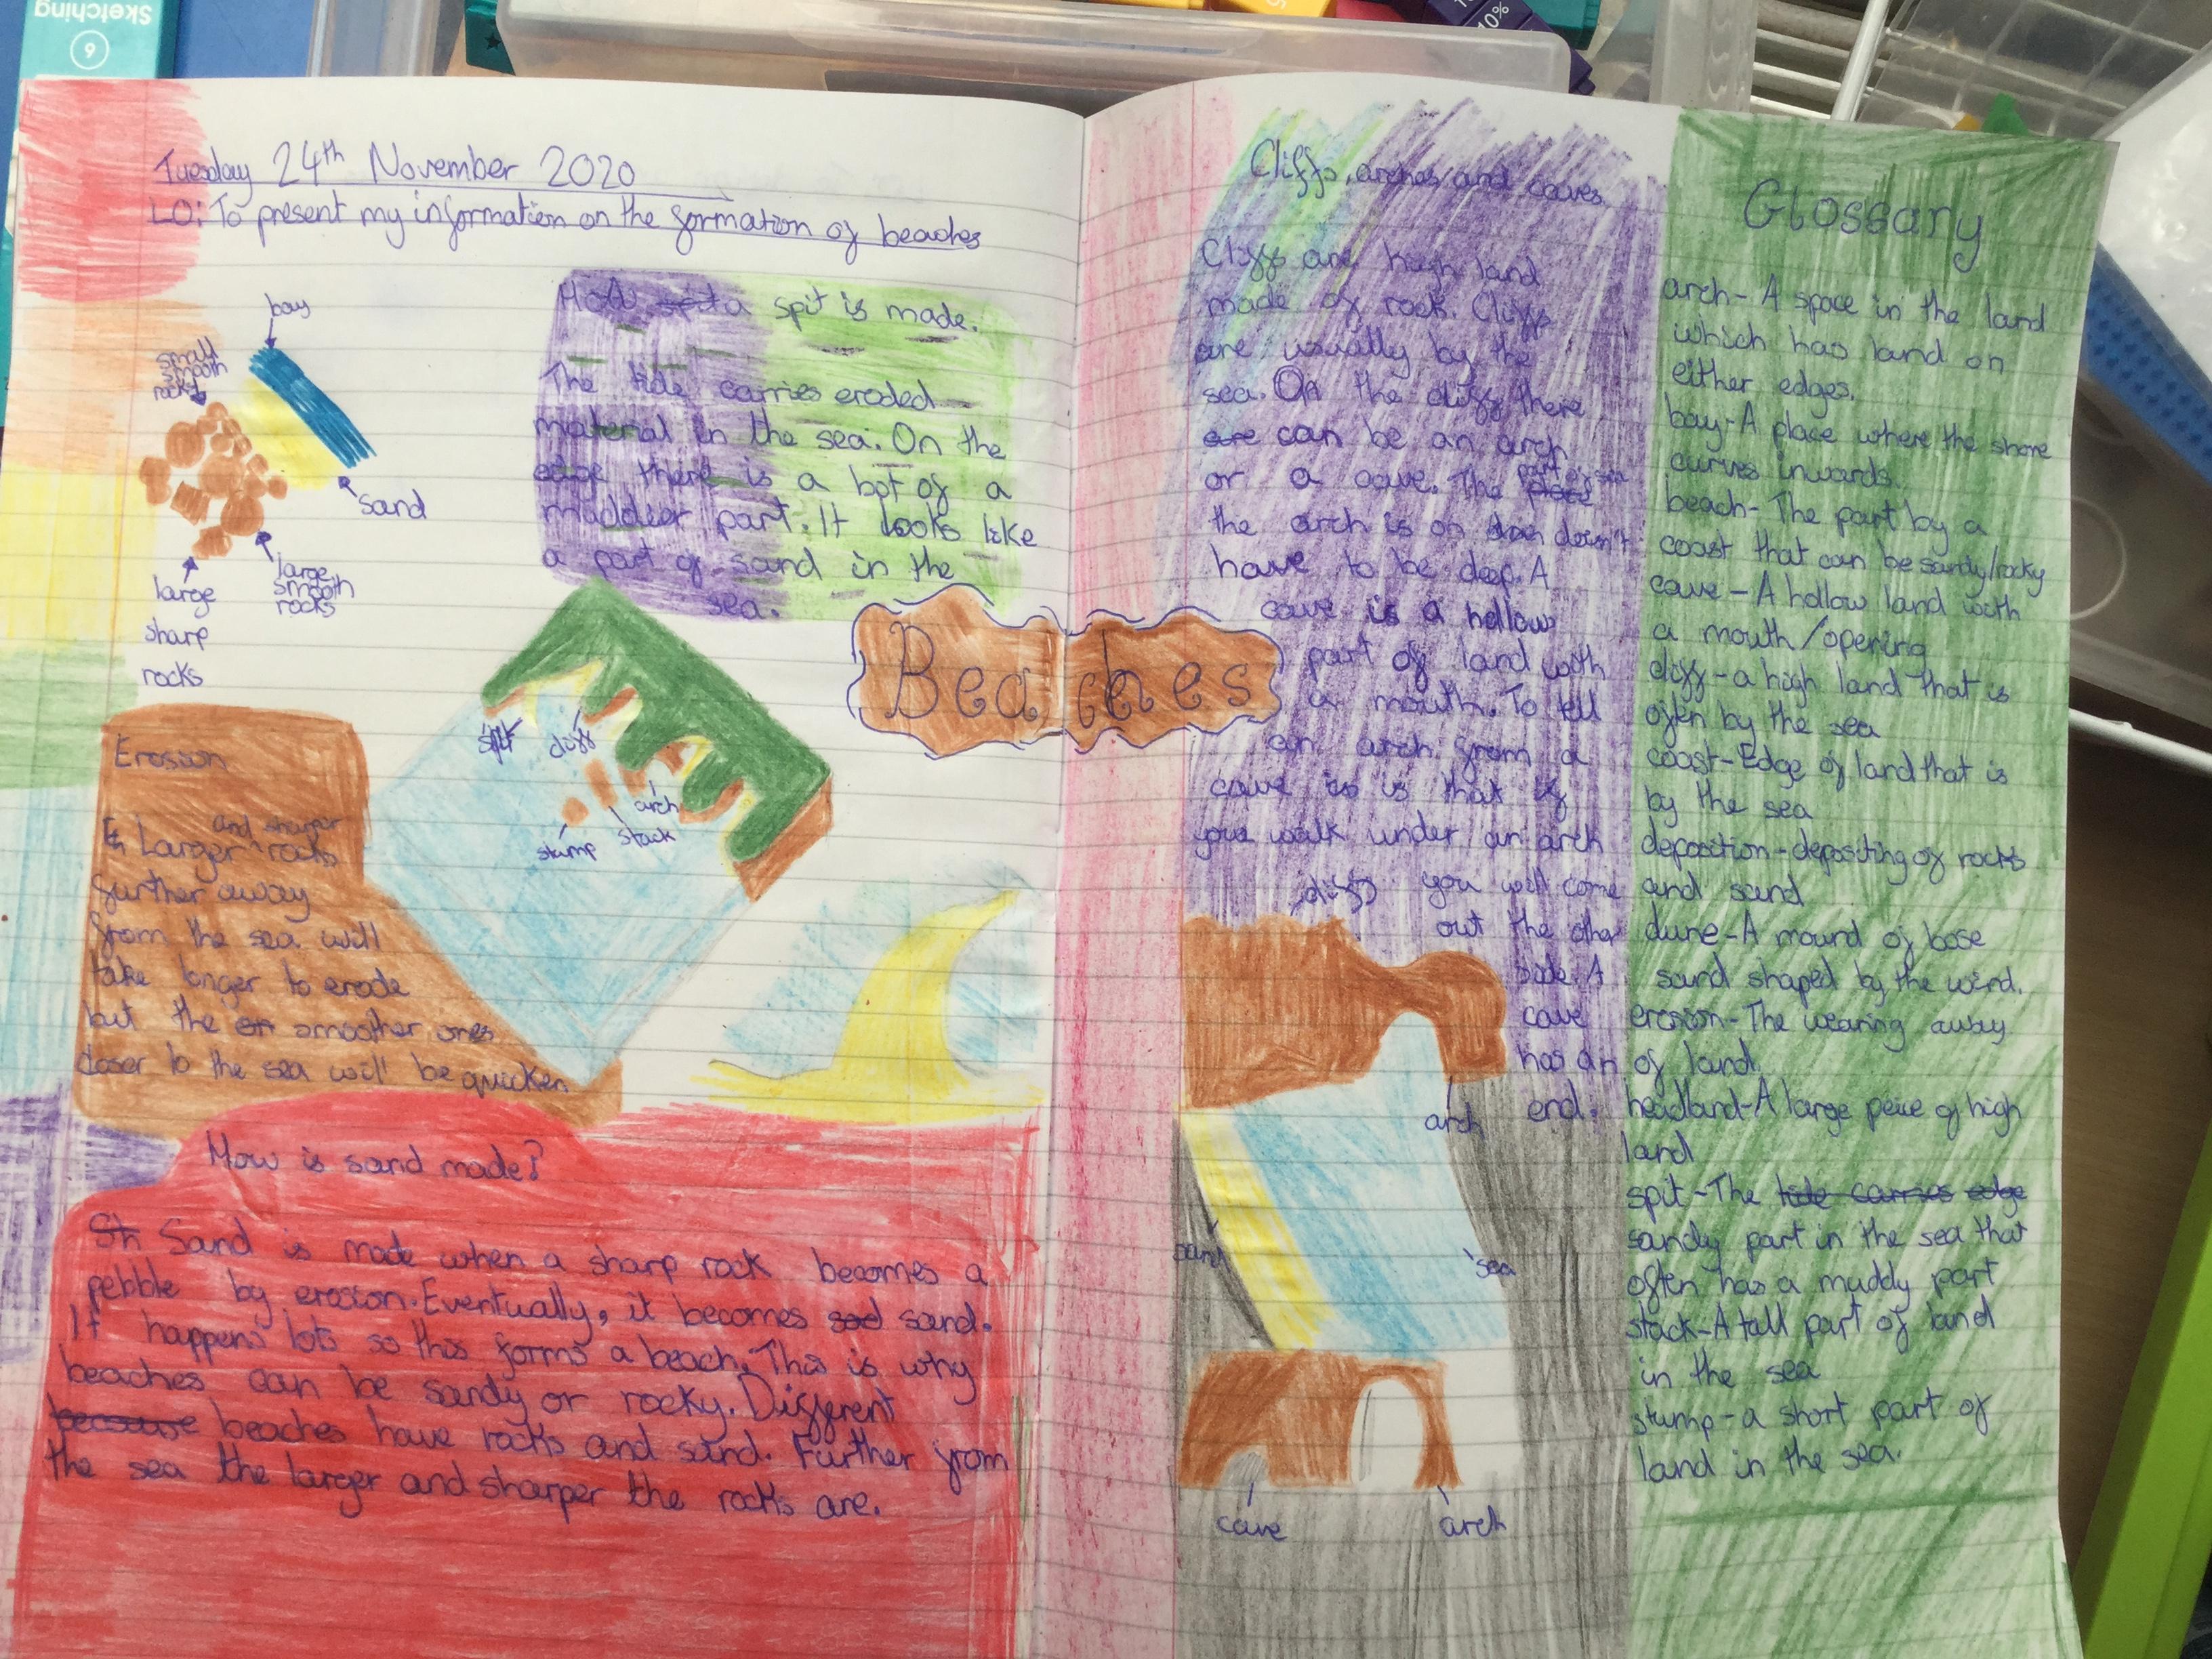 Sketching
6
10%
Tuesday 24th November 2020
LO: To present my information on the formation of beaches
bay
small
smooth
rocks
sand
large
smooth
rocks
large
sharp
rocks
How a spit is made.
The tide carries eroded
material in the sea. On the
edge there is a bot of a
muddier part. It looks like
a part of sand in the
sea.
Beaches
spit
cliff
arch
stack
stump
Erosion
Larger and sharper rocks
further away
from the sea will
take longer to erode
but the smoother ones
closer to the sea will be quicker.
How is sand made?
Sand is made when a sharp rock becomes a
pebble by erosion. Eventually, it becomes sand.
It happens lots so this forms a beach. This is why
beaches can be sandy or rocky. Different
beaches have rocks and sand. Further from
the sea the larger and sharper the rocks are.
Cliffs, arches and caves
Cliffs are high land
made of rock. Cliffs
are usually by the
sea. On the cliff there
can be an arch
or a cave. The part of sea
the arch is on doesn't
have to be deep. A
cave is a hollow
part of land with
a mouth. To tell
an arch from a
cave is is that if
you walk under an arch
you will come
out the other
side. A
cave
has an
end.
cliff
arch
sand
sea
cave
arch
Glossary
arch- A space in the land
which has land on
either edges.
bay- A place where the shore
curves inwards.
beach- The part by a
coast that can be sandy/rocky
cave - A hollow land with
a mouth/opening
cliff - a high land that is
often by the sea
coast- Edge of land that is
by the sea
deposition - depositing of rocks
and sand
dune- A mound of loose
sand shaped by the wind.
erosion- The wearing away
of land.
headland- A large peice of high
land
spit- The tide carries edge
sandy part in the sea that
often has a muddy part
stack- A tall part of land
in the sea
stump - a short part of
land in the sea.